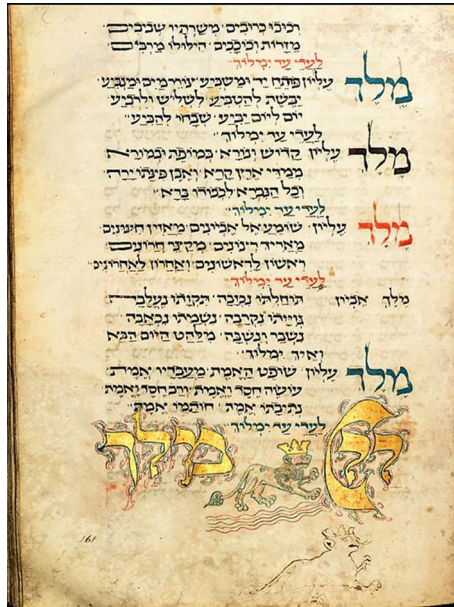 רכובו כרובים משרתיו שביבים
מזרות וכוכבים הילולו מרבים
לעדי עד ימלוך
מלך עליון פתח יד ומשביע צורר מים ומנביע
יבשת להטביע לשליש ולרביע
יום ליום יביע שבחו להביע
לעדי עד ימלוך
מלך עליון קדוש ונורא במופת ובמורא
ממדי ארץ קרא ואבן פינתו ירה
וכל הנברא לכבודו ברא
לעדי עד ימלוך
מלך עליון שומע אל אביונים מאזין חינונים
מאריך רצונים מקצר חרונים
ראשון לראשונים ואחרון לאחרונים
לעדי עד ימלוך
מלך אביון תוחלתו נכזבה תקותו נעלבה
גוייתו נקרבה נשמתו נכאבה
נשבר ונשבה מלהט היום הבא
ואיך ימלוך
מלך עליון שופט האמת מעבדיו אמת
עושה חסד ואמת ורב חסד ואמת
נתיבתו אמת חותמו אמת
לעדי עד ימלוך
מלך
161